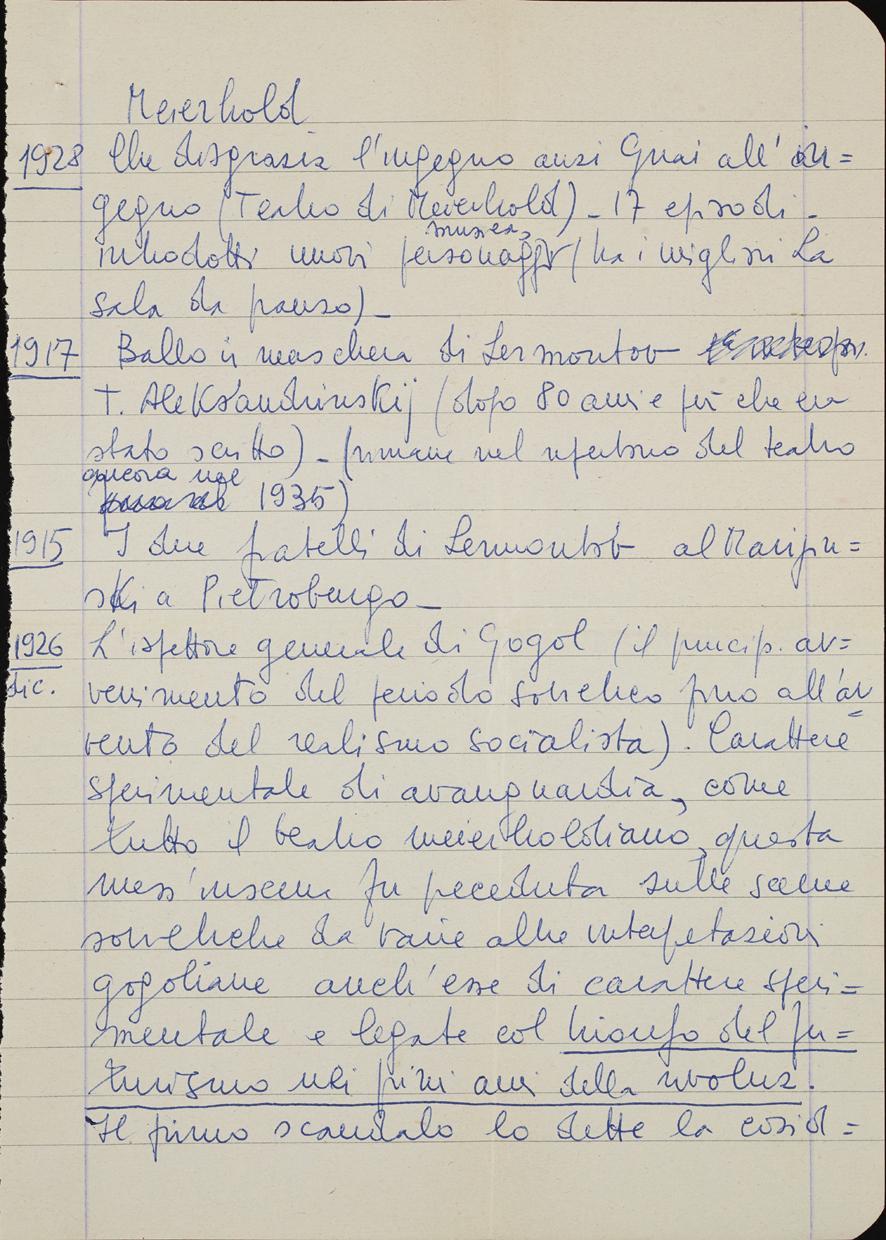 Meierhold
1928 Che disgrazia l'ingegno anzi Guai all'in=
gegno (Teatro di Meierhold) - 17 episodi -
musica,
introdotti nuovi personaggi (tra i migliori La
sala da pranzo) -
1917 Ballo in maschera di Lermontov
T. Aleksandrinskij (dopo 80 anni e più che era
stato scritto) - (rimane nel repertorio del teatro
ancora nel
1935)
1915 I due fratelli di Lermontov al Mariin=
ski a Pietroburgo -
1926 L'ispettore generale di Gogol (il princip. av=
dic. venimento del periodo sovietico fino all'av=
vento del realismo socialista). Carattere
sperimentale di avanguardia, come
tutto il teatro meierholdiano, questa
mess'inscena fu preceduta sulle scene
sovietiche da varie altre interpretazioni
gogoliane anch'esse di carattere speri=
mentale e legate col trionfo del fu=
turismo nei primi anni della rivoluz.
Il primo scandalo lo dette la cosid=